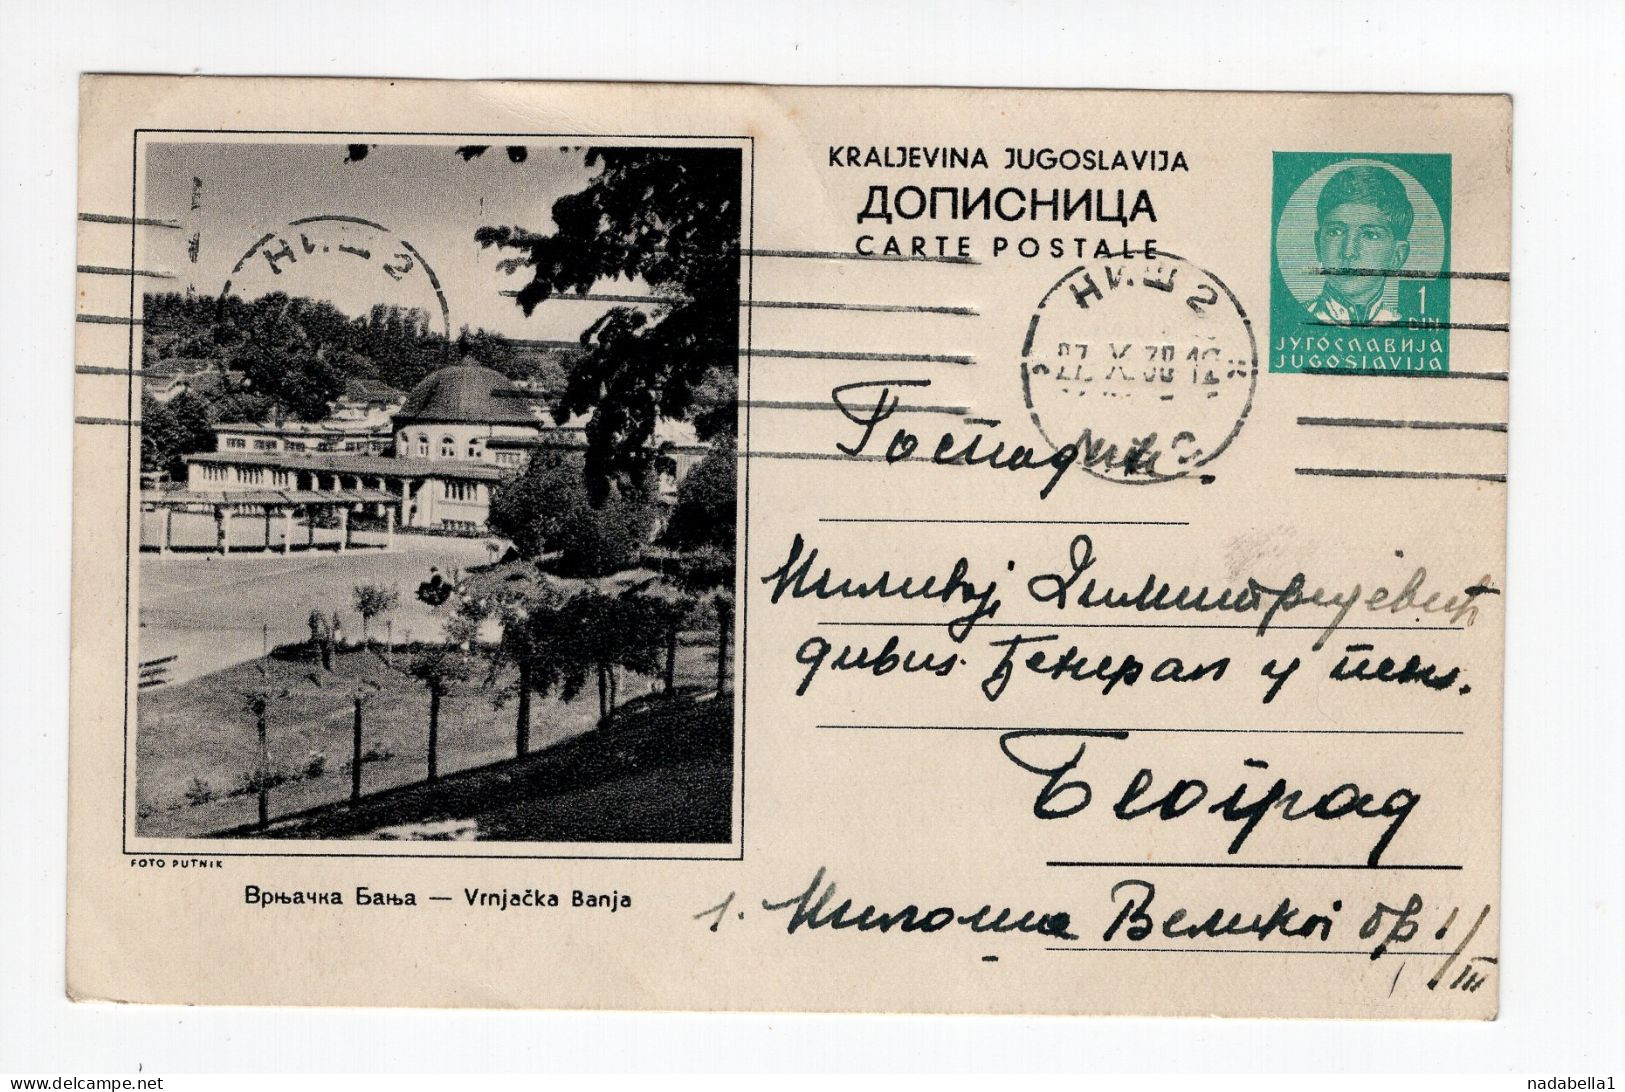 KRALJEVINA JUGOSLAVIJA
ДОПИСНИЦА
CARTE POSTALE
1
DIN
ЈУГОСЛАВИЈА
JUGOSLAVIJA
НИШ 2
НИШ 2
27. X 38 12
Господин
Миливој Димитријевић
дивиз. ђенерал у пенз.
Београд
Милоша Великог бр 1/III
FOTO PUTNIK
Врњачка Бања — Vrnjačka Banja
nadabella1